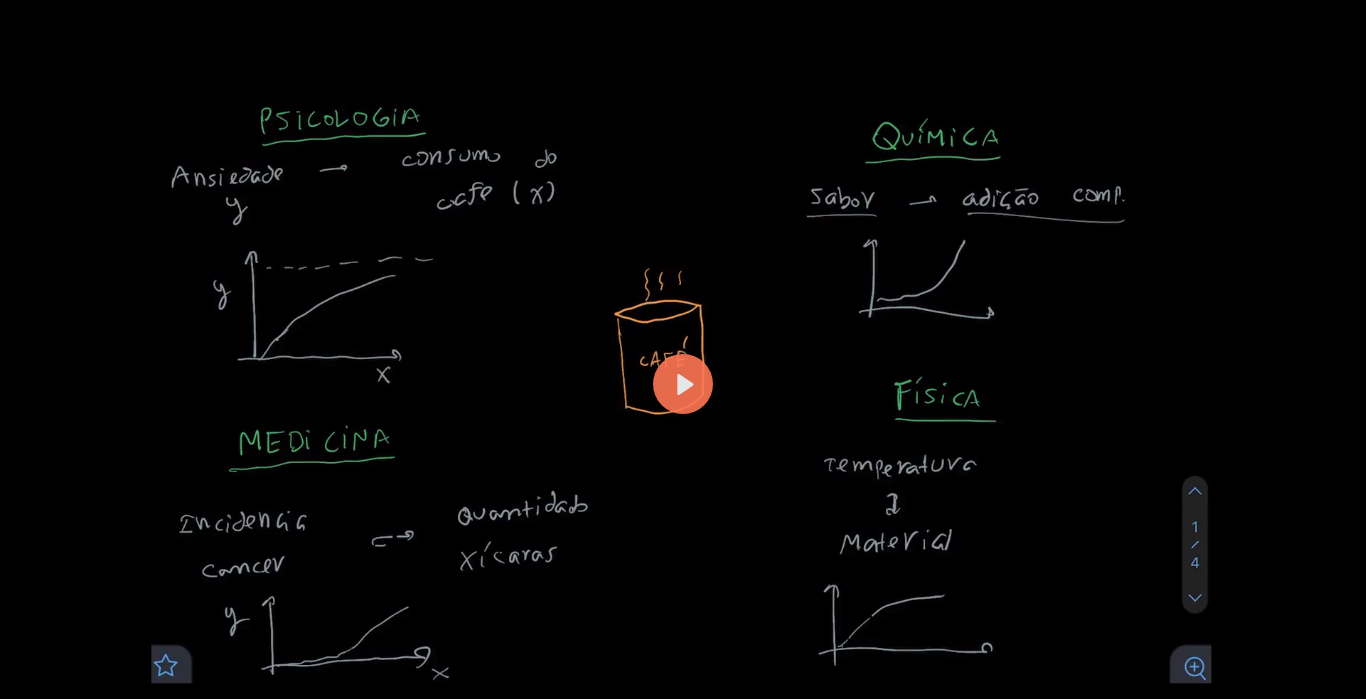 PSICOLOGIA
Ansiedade → consumo do
café (x)
y
y
x
MEDICINA
Incidencia
cancer
Quantidade
xícaras
y
x
CAFÉ
QUÍMICA
Sabor → adição comp.
FÍSICA
Temperatura
Material
1
/
4